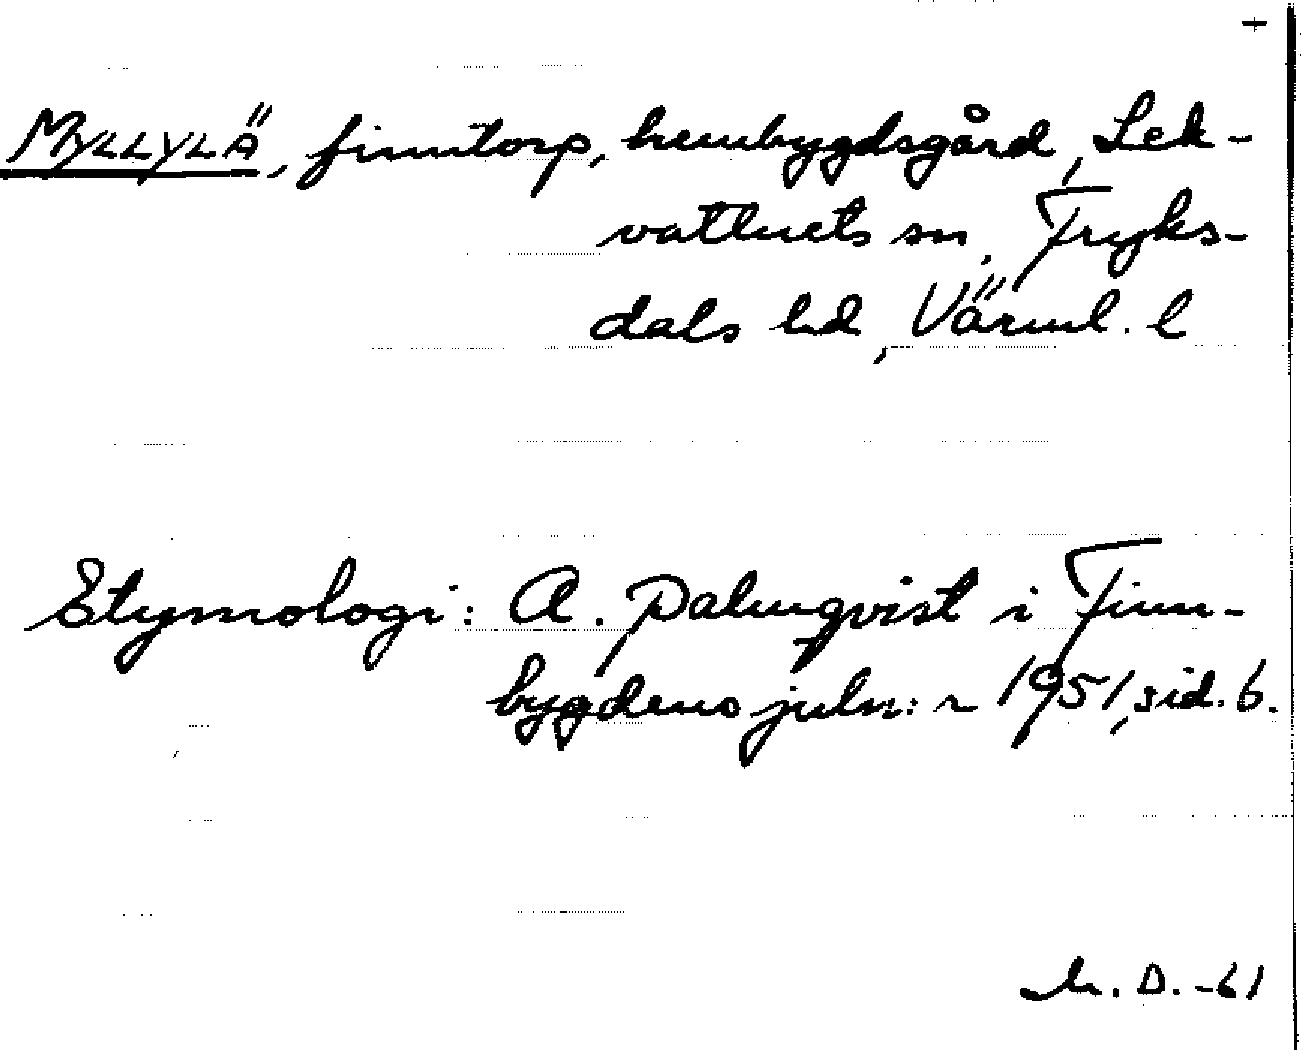 +
MYLLYLÄ, finntorp, hembygdsgård, Lek-
vattnets sn, Fryks-
dals hd, Värml. l
Etymologi: A. Palmqvist i Finn-
bygdens juln:r 1951, sid. 6.
M. D. -61